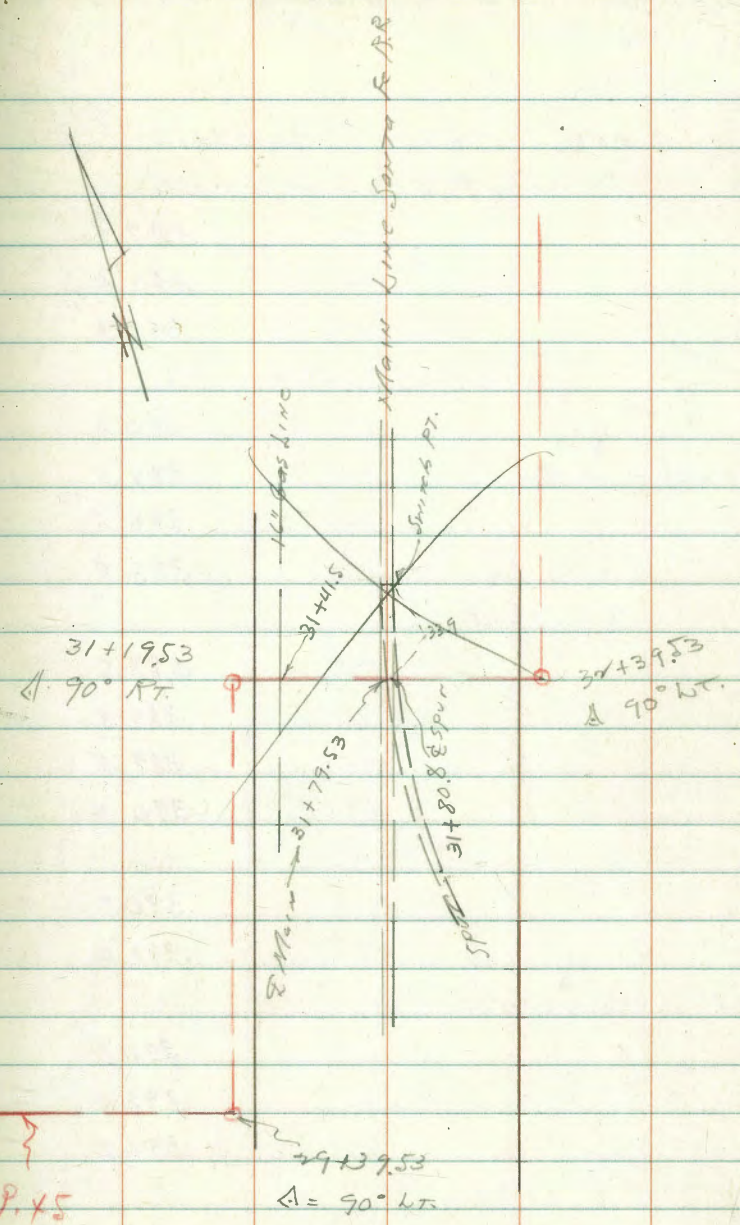 Main Line Santa Fe R.R
N
16" Gas Line
Switch PT.
31+41.5
33.9
31+19.53
Δ 90° RT.
32+39.53
Δ 90° LT.
℄ Main 31+79.53
31+80.8 ℄ Spur
Spur
29+39.53
Δ = 90° LT.